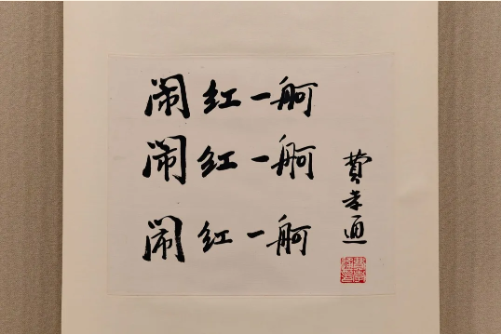 闹红一舸
闹红一舸
闹红一舸
费孝通